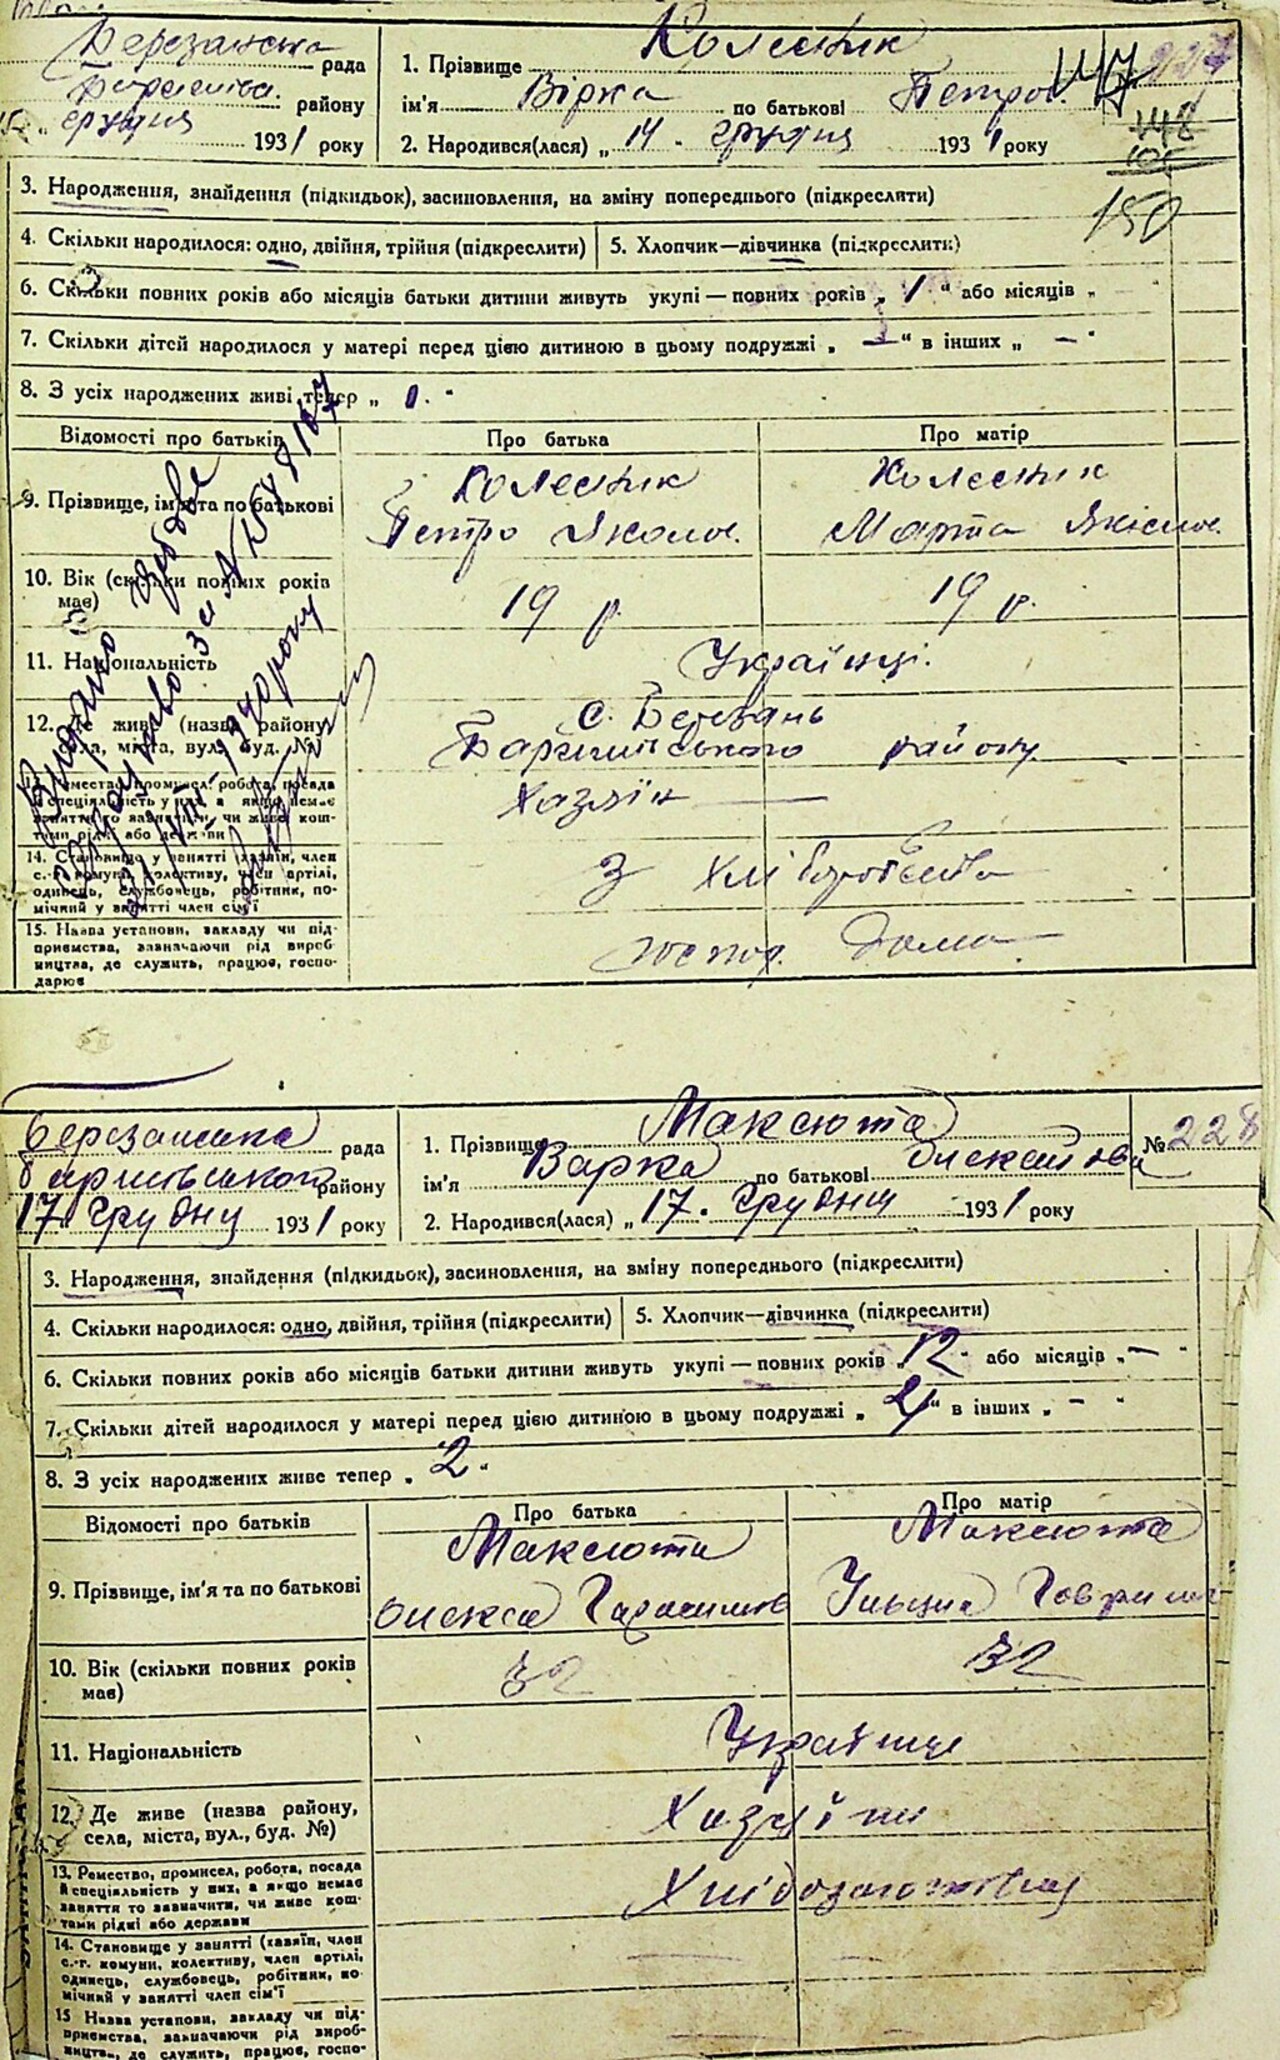 Березанська рада
району
грудня 1931 року
1. Прізвище Колесник
ім'я Вірка по батькові Петров.
2. Народився(лася) „ 14 . грудня 1931 року
147
227
148
150
3. Народження, знайдення (підкидьок), засиновлення, на зміну попереднього (підкреслити)
4. Скільки народилося: одно, двійня, трійня (підкреслити)
5. Хлопчик—дівчинка (підкреслити)
6. Скільки повних років або місяців батьки дитини живуть укупі — повних років „ 1 " або місяців „
7. Скільки дітей народилося у матері перед цією дитиною в цьому подружжі „ — " в інших „ — "
8. З усіх народжених живі тепер „
Відомості про батьків
Про батька
Про матір
9. Прізвище, ім'я та по батькові
Колесник
Петро Яковов.
Колесник
Марта
10. Вік (скільки повних років має)
19 р.
19 р.
11. Національність
Українці.
12. Де живе (назва району, села, міста, вул., буд. №)
С. Березань
Баришівського району
13. Ремество, промисел, робота, посада
й спеціяльність у них, а якщо немає
заняття то зазначити, чи живе кош-
тами рідні або держави
Хазяїн —
14. Становище у занятті (хазяїн, член
с.-г. комуни, колективу, член артілі,
одинець, службовець, робітник, по-
мічний у занятті член сім'ї
З хліборобства
15. Назва установи, закладу чи під-
приємства, зазначаючи рід вироб-
ництва, де служить, працює, госпо-
дарює
господ. дома
Видано
Березанська рада
Баришівського району
17 грудня 1931 року
1. Прізвище Максюта
ім'я Варка по батькові Олексіївна
2. Народився(лася) „ 17 . грудня 1931 року
№ 228
3. Народження, знайдення (підкидьок), засиновлення, на зміну попереднього (підкреслити)
4. Скільки народилося: одно, двійня, трійня (підкреслити)
5. Хлопчик—дівчинка (підкреслити)
6. Скільки повних років або місяців батьки дитини живуть укупі — повних років „ 12 " або місяців „ — "
7. Скільки дітей народилося у матері перед цією дитиною в цьому подружжі „ " в інших „ - "
8. З усіх народжених живе тепер „ 2 "
Відомості про батьків
Про батька
Про матір
9. Прізвище, ім'я та по батькові
Максюта
Олекса Гарасимов
Максюта
Ульяна Гаврилів
10. Вік (скільки повних років має)
32
32
11. Національність
Українці
12. Де живе (назва району, села, міста, вул., буд. №)
Хазяїни
13. Ремество, промисел, робота, посада
й спеціяльність у них, а якщо немає
заняття то зазначити, чи живе кош-
тами рідні або держави
14. Становище у занятті (хазяїн, член
с.-г. комуни, колективу, член артілі,
одинець, службовець, робітник, по-
мічний у занятті член сім'ї
15 Назва установи, закладу чи під-
приємства, зазначаючи рід вироб-
ництва, де служить, працює, госпо-